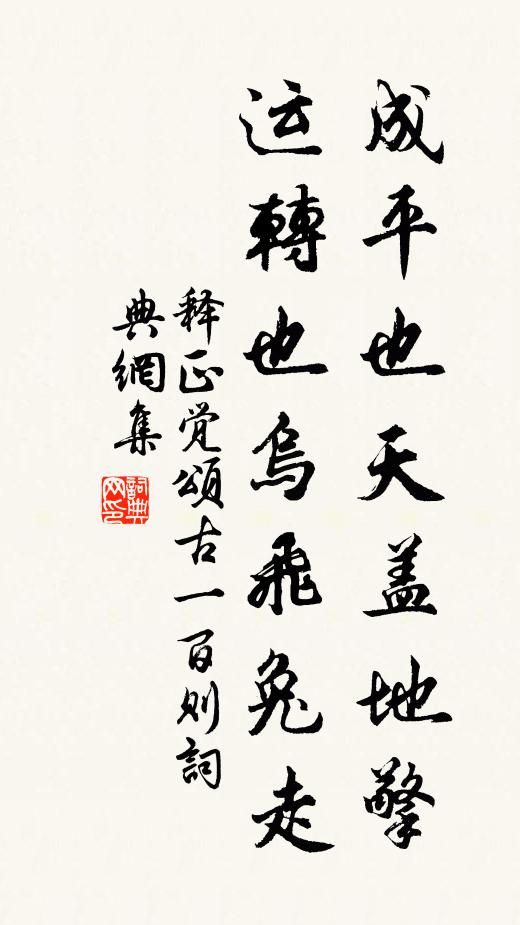 成平也天盖地擎
运轉也烏飛兔走
释正觉頌古一百则詞
典網集
詞典网印